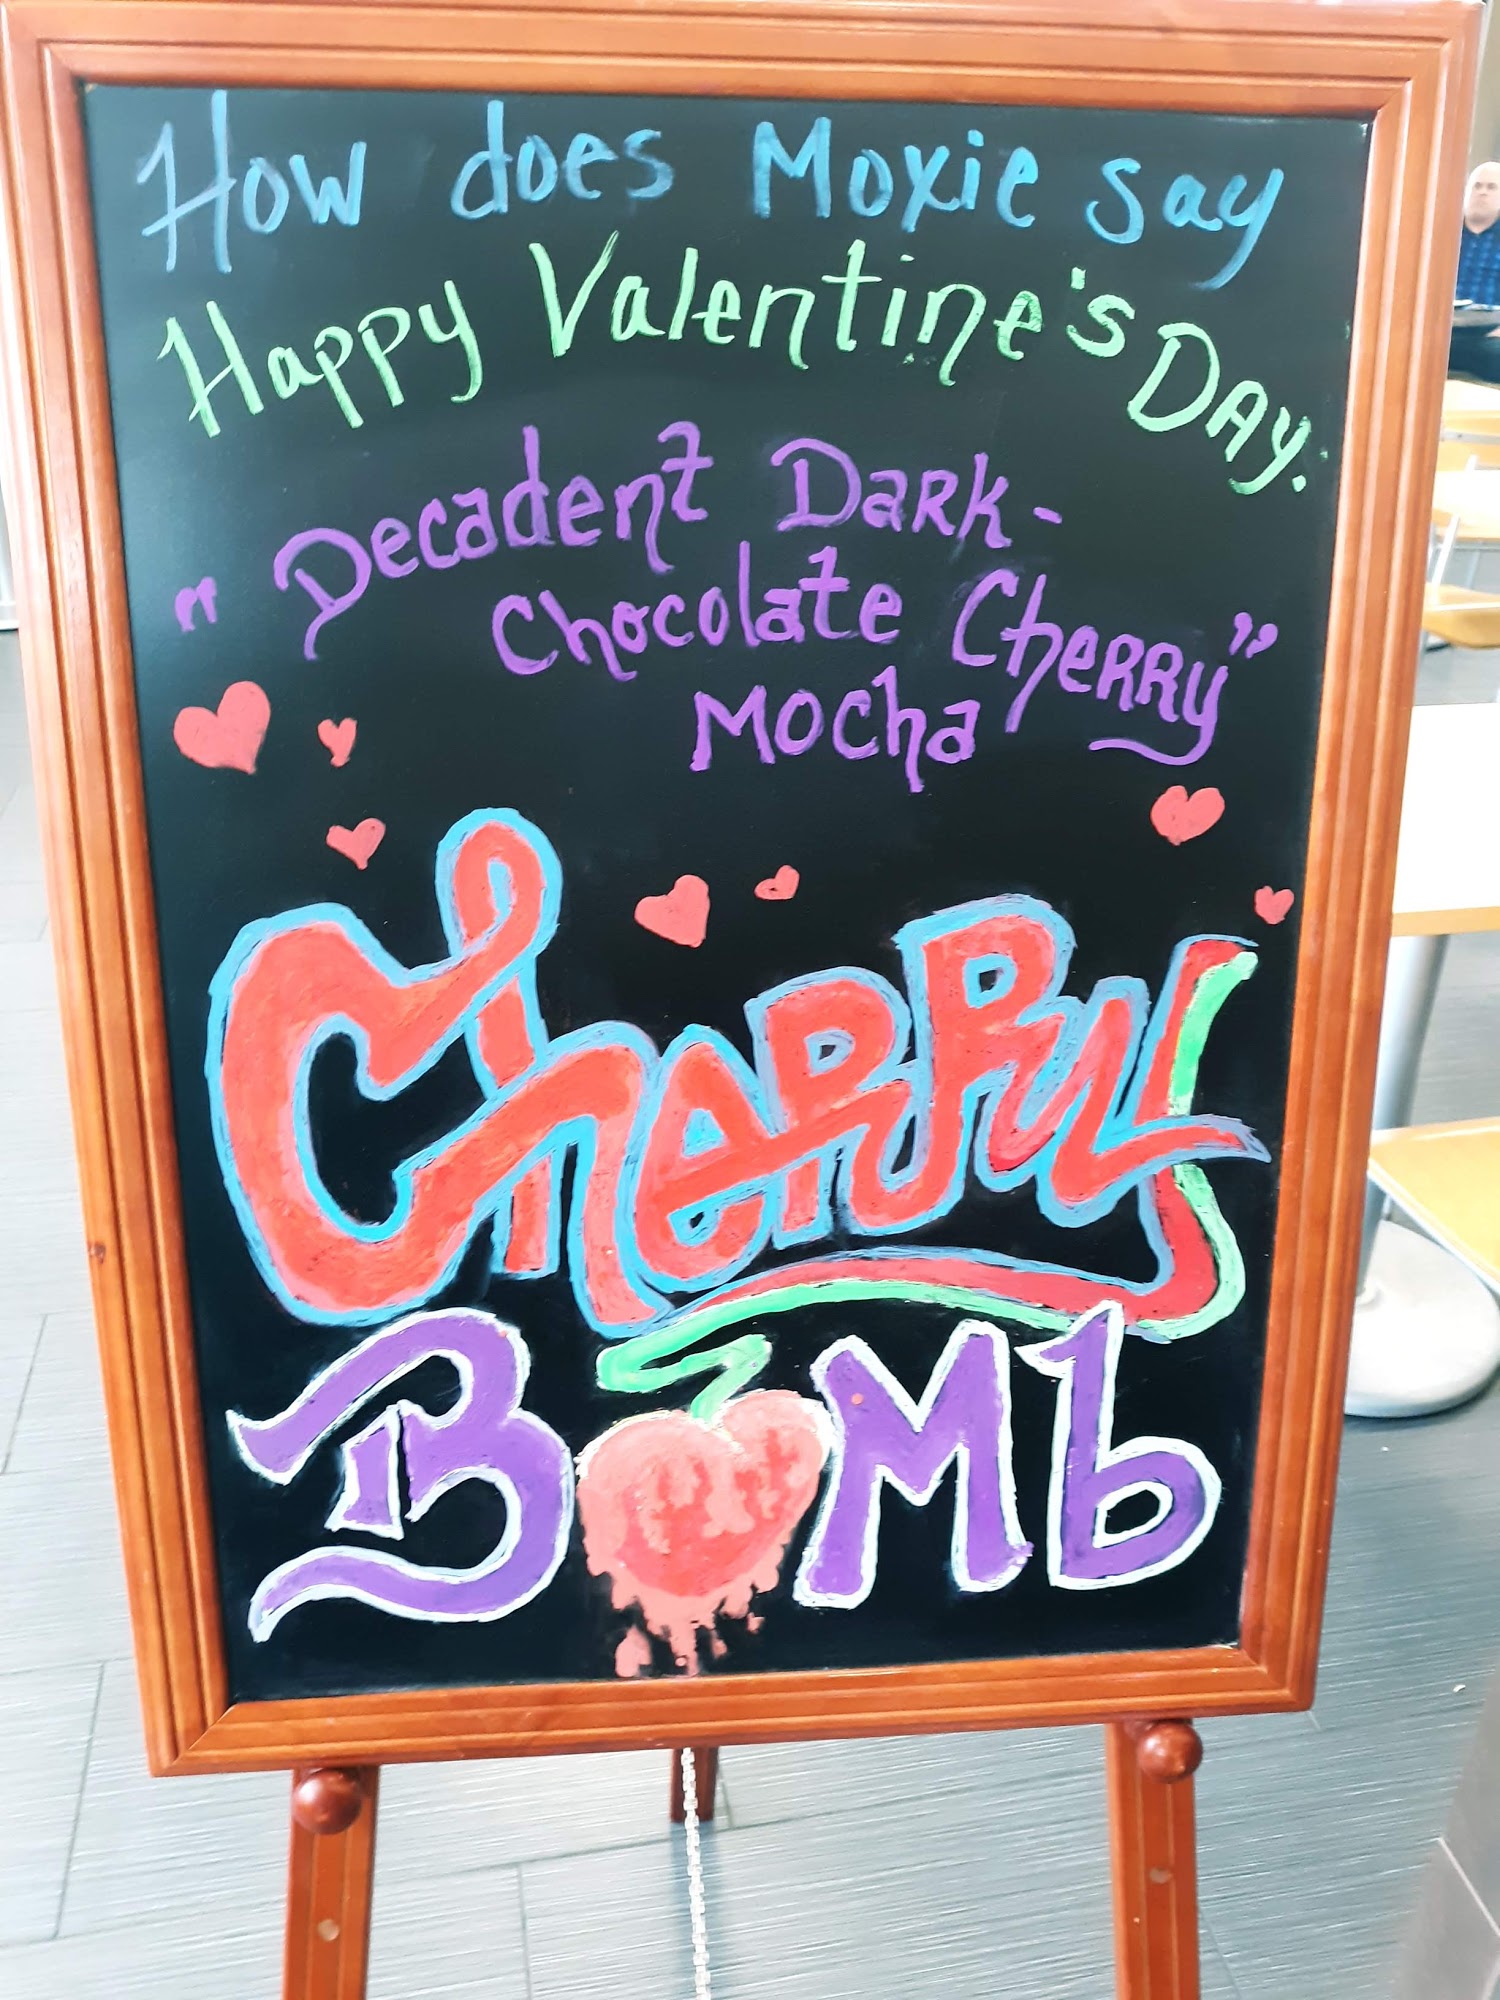 How does Moxie say
Happy Valentine's Day.
"Decadent Dark-
Chocolate Cherry"
Mocha
Cherry
Bomb